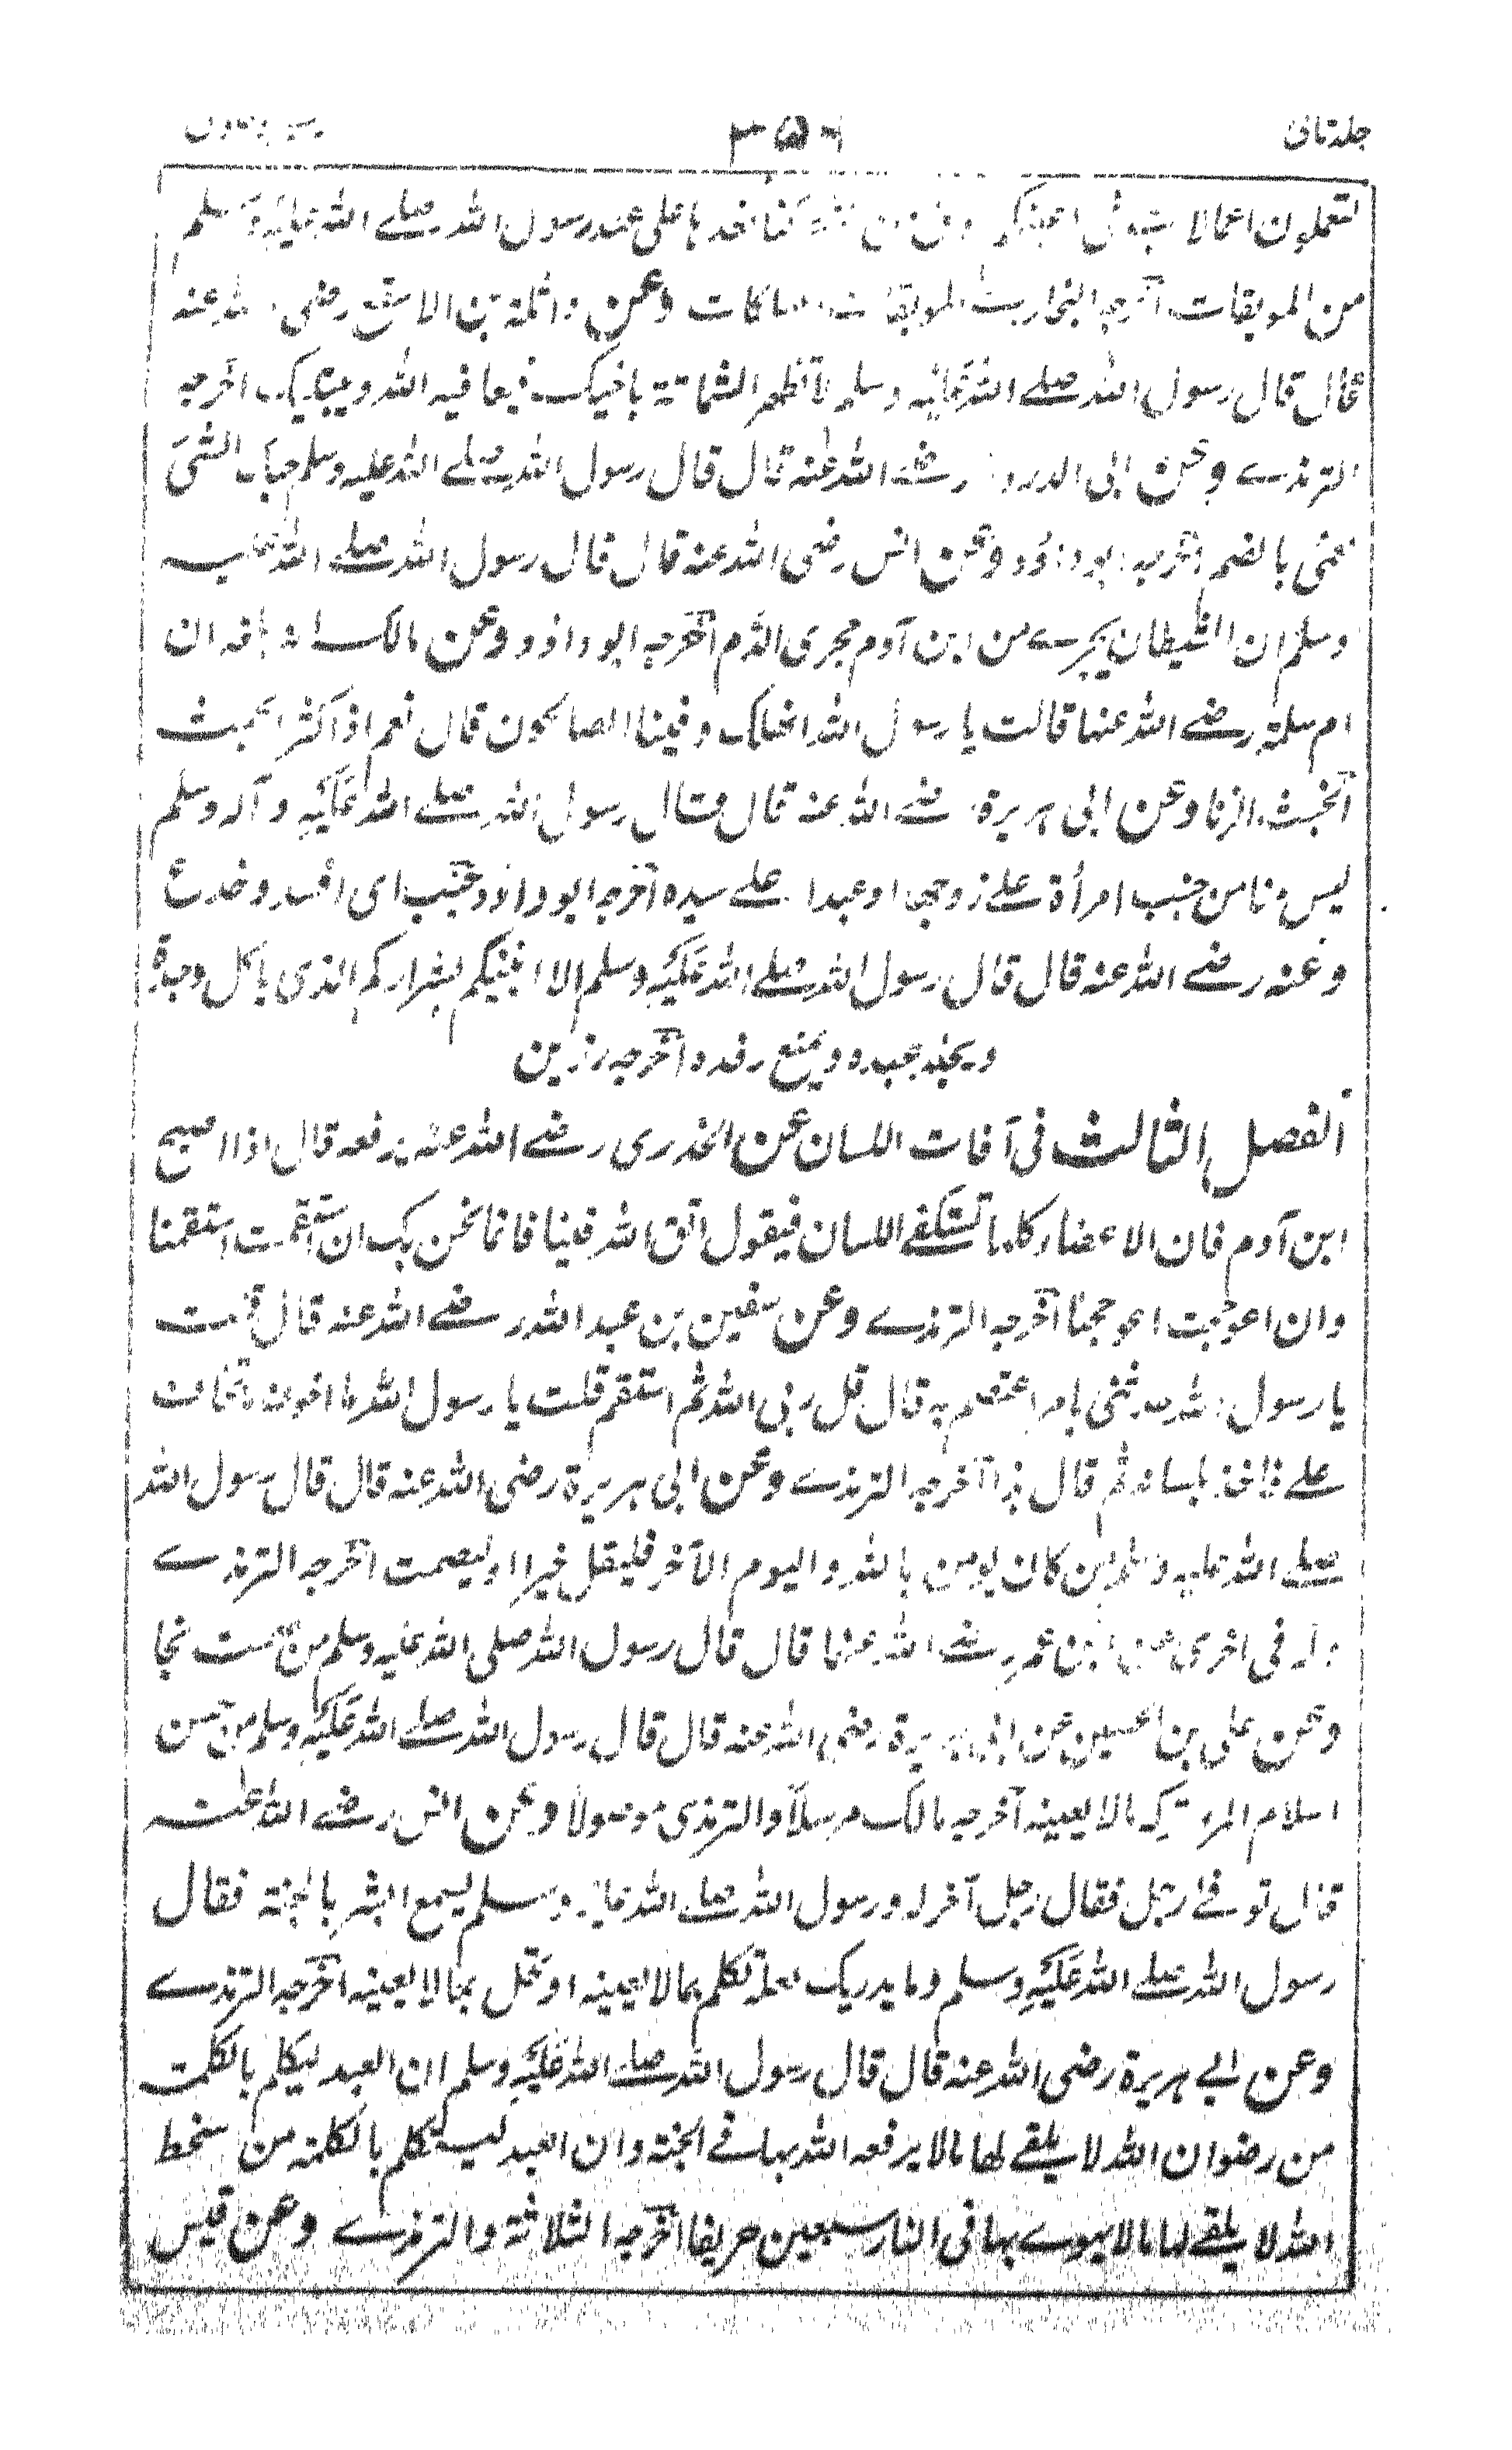 جلد ثانی ٣٥٦
لتعملون اعمالا ... كنا نعدها على عهد رسول الله صلے الله عليه وسلم
من الموبقات اخرجه البخارى الموبقات ... وعن واثلة بن الاسقع رضى الله عنه
قال قال رسول الله صلے الله عليه وسلم لا تظهر الشماتة باخيك فيعافيه الله ويبتليك اخرجه
الترمذے وعن ابى الدرداء رضے الله عنه قال قال رسول الله صلے الله عليه وسلم حبك الشئ
يعمى ويصم اخرجه ابو داؤد وعن انس رضى الله عنه قال قال رسول الله صلے الله عليه
وسلم ان الشيطان يجرے من ابن آدم مجرى الدم اخرجه ابو داؤد وعن مالك انه بلغه ان
ام سلمة رضے الله عنها قالت يا رسول الله انهلك وفينا الصالحون قال نعم اذا كثر الخبث
الخبث الزنا وعن ابى هريرة رضے الله عنه قال قال رسول الله صلے الله عليه وآله وسلم
ليس منا من خبب امرأة علے زوجها او عبدا علے سيده اخرجه ابو داؤد وخبب اى افسد وخدع
وعنه رضے الله عنه قال قال رسول الله صلے الله عليه وسلم الا انبئكم بشراركم الذى ياكل وحده
ويجلد عبده ويمنع رفده اخرجه رزين
الفصل الثالث فى آفات اللسان عن الخدرى رضے الله عنه يرفعه قال اذا اصبح
ابن آدم فان الاعضاء كلها تستكفے اللسان فيقول اتق الله فينا فانما نحن بك ان استقمت استقمنا
وان اعوججت اعوججنا اخرجه الترمذے وعن سفين بن عبد الله رضے الله عنه قال قلت
يا رسول الله حدثنى بامر اعتصم به قال قل ربى الله ثم استقم قلت يا رسول الله ما اخوف ما تخاف
علے فاخذ بلسانه ثم قال هذا اخرجه الترمذے وعن ابى هريرة رضى الله عنه قال قال رسول الله
صلے الله عليه وسلم من كان يومن بالله واليوم الآخر فليقل خيرا او ليصمت اخرجه الترمذے
وله فى اخرى عن ابن عمر رضے الله عنهما قال قال رسول الله صلى الله عليه وسلم من صمت نجا
وعن على بن الحسين عن ابى هريرة رضى الله عنه قال قال رسول الله صلے الله عليه وسلم من حسن
اسلام المرء تركه مالا يعينه اخرجه مالك مرسلاً والترمذى موصولا وعن انس رضے الله عنه
قال توفے رجل فقال رجل آخر له ورسول الله صلے الله عليه وسلم يسمع ابشر بالجنة فقال
رسول الله صلے الله عليه وسلم وما يدريك لعله تكلم بمالا يعينه او بخل بمالا يعينه اخرجه الترمذے
وعن ابے هريرة رضى الله عنه قال قال رسول الله صلے الله عليه وسلم ان العبد ليكلم بالكلمة
من رضوان الله لا يلقے لها بالا يرفعه الله بها فے الجنة وان العبد ليتكلم بالكلمة من سخط
الله لا يلقے لها بالا يهوے بها فى النار سبعين خريفا اخرجه الثلاثة والترمذے وعن قيس